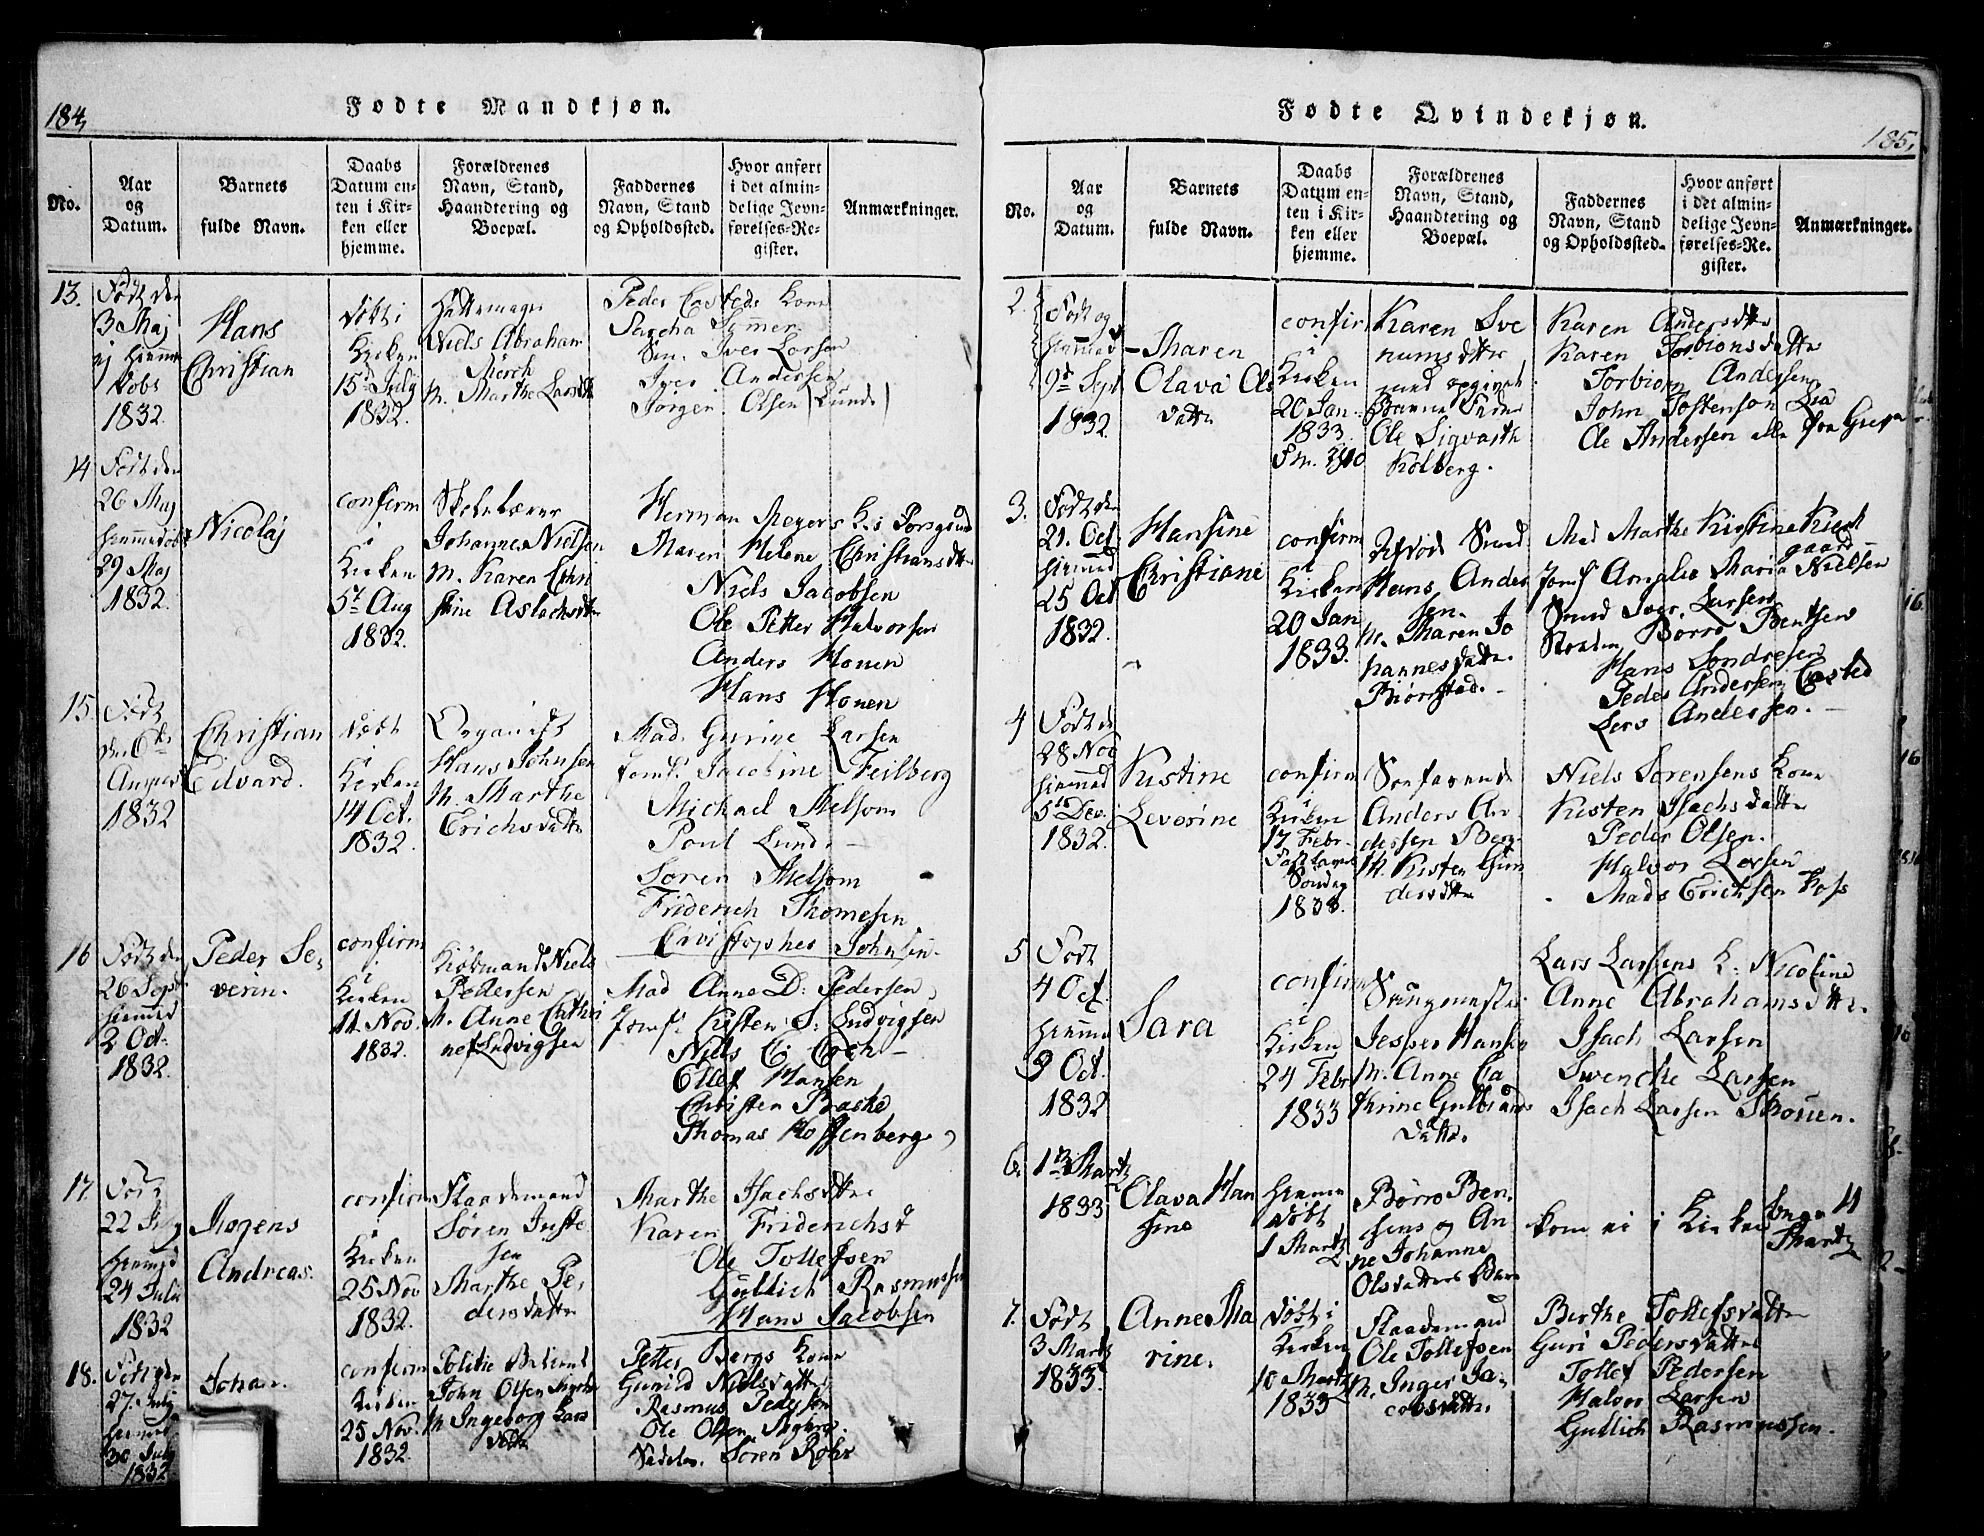 184,
Fødte Mandkjøn.
No.
Aar
og
Datum.
Barnets
fulde Navn.
Daabs
Datum en-
ten i Kir-
ken eller
hjemme.
Forældrenes
Navn, Stand,
Haandtering og
Boepæl.
Faddernes
Navn, Stand
og Opholdssted.
Hvor anført
i det almin-
delige Jevn-
førelses-Re-
gister.
Anmærkninger.
13.
Født den
3 Maj
1832
Hans
Christian
døbt i
Kirken
15d July
1832.
Hattemager
Niels Abraham
Mørch
M. Marthe Larsdtr
Peder Costeds Kone
Iver Larsen
Iver Andersen
Jørgen Olsen Lunde
14
Født den
26 Maj
29 Maj
1832.
Nicolaj
confirm
i
Kirken
5t Aug
1832.
Skolelærer
Johannes Nielsen
M. Karen Cathri
stine Aslachsdtr
Herman Meyers K. i Porsgrund
Maren Helene Christiansdtr
Niels Jacobsen
Ole Petter Halvorsen
Anders Houen
Hans Houen
15.
Født
den 6te
August
1832
Christian
Edvard.
døbt
i
Kirken
14 Oct.
1832.
Organist
Hans Johnsen
M. Marthe
Erichsdatter
Mad. Gurine Larsen
Jomf. Jacobine Feilberg
Michael Melsom
Poul Lund
Søren Melsom
Friderich Thomesen
Christopher Johnsen.
16
Født den
26 Sept
hiemmed
2 Oct.
1832.
Peder Se,
verin.
confirm
i
Kirken
11. Nov.
1832.
Kiøbmand Niels
Pedersen
M. Anne Cathri
ne Ludvigsen
Mad Anne D: Pedersen,
Jomf. Kirsten S: Ludvigsen
Niels C: Coch
Ellef Hansen
Christen Braske
Thomas Hoffenberg,
17.
Født
22 July
hiemmed
24 Julii
1832
Mogens
Andreas.
confirm
i
Kirken
25 Nov
1832.
Flaademand
Søren Juste
sen
Marthe Pe,
dersdatter
Marthe Isachsdtr
Karen Friderichsd
Ole Tollefsen
Gullich Rasmussen
Hans Jacobsen
18.
Født den
27. July
30 July
1832
Johan.
confirm
Kirken
25 Nov.
1832.
Politie Betient
John Olsen
M. Ingeborg Lars
datter
Petter Bergs Kone
Gunild Nielsdatter
Rasmus Pedersen
Ole Olsen
Søren Rohr
185,
Fødte Qvindekjøn.
No.
Aar
og
Datum.
Barnets
fulde Navn.
Daabs
Datum en-
ten i Kir-
ken eller
hjemme.
Forældrenes
Navn, Stand,
Haandtering og
Boepæl.
Faddernes
Navn, Stand
og Opholdssted.
Hvor anført
i det almin-
delige Jevn-
førelses-Re-
gister.
Anmærkninger.
2.
Født og
hiemmed
9d Sept
1832.
Maren
Olava Ols
datter
confir
i
Kirken
20 Jan.
1833.
Karen Sve
numsdatter
med opgivet
Barne Fader
Ole Sigvarth
Kolberg.
Karen Andersdtr
Karen Torbionsdatter
Torbion Andersen
John Tostenson Lia
Ole Andersen alle fra
3.
Født den
21. Oct
hiemmed
25 Oct
1832.
Hansine
Christiane
confirm
i
Kirken
20 Jan
1833.
Smed
Hans Ander
sen.
M. Maren Jo
hannesdatter
Biørstad.
Mad Marthe Kirstine Kierl
gaard
Jomf Amalie Maria Nielsen
Smed Larsen
Børre Bentsen
Hans Sondresen
Peder Andersen Costed
Lars Andersen.
4
Født d
28 Nov
hiemmed
5te Dec.
1832.
Kirstine
Severine
confirm
i
Kirken
17 Febr.
Fastelavns
Søndag
1833.
Søefarende
Anders An
dersen Berg
M. Kirsten Gun
dersdtr
Niels Sørensens Kone
Kirsten Isachsdatter
Peder Olsen.
Halvor Larsen
Mads Erichsen Foss
5
Født
4 Oct.
hiemmed
9 Oct.
1832
Sara
confirm
i
Kirken
24 Febr
1833
Tungmester
Jesper Hansen
M. Anne Ca
thrine Gulbrands
datter.
Lars Larsens K: Nicoline
Anne Abrahamsdtr.
Isach Larsen
Swenche Larsen
Isach Larsen Mouen.
6.
1te Martz
1833
Olava Han
sine
hiemme
døbt
1 Martz
Børre Ben,
sens og An
ne Johanne
Olsdatters Barn
kom ei i Kirken
4
Martz
7.
Født
3 Martz
1833.
Anne Ma
rine.
døbt i
Kirken
10 Martz
1833
Flaademand
Ole Tollefsen
M. Inger Ja,
cobsdatter.
Berthe Tollefsdatter
Guri Pedersdatter
Tollef Pedersen
Halvor Larsen
Gullich Rasmussen.